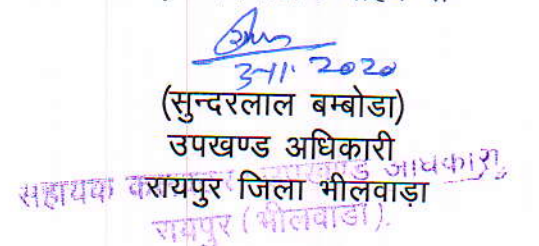 3-11-2020
(सुन्दरलाल बम्बोडा)
उपखण्ड अधिकारी
रायपुर जिला भीलवाड़ा
सहायक उपखण्ड अधिकारी,
रायपुर (भीलवाडा).